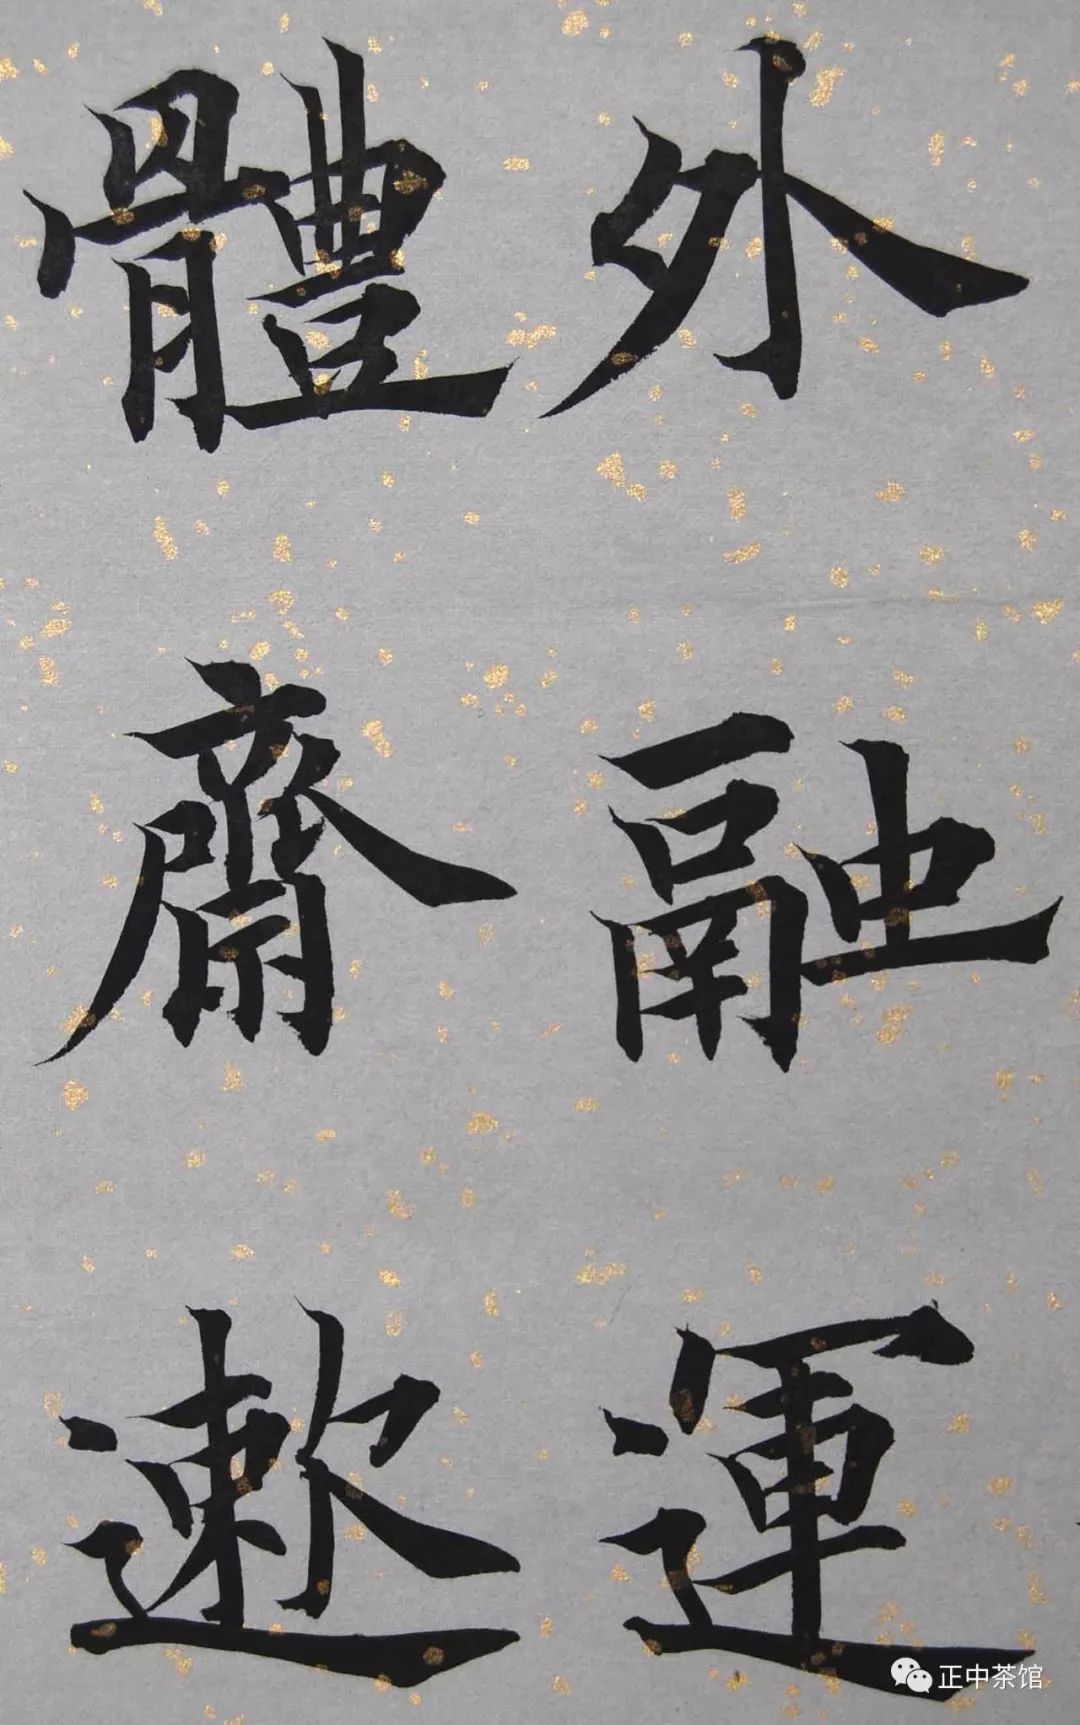 外融運
體齋遬
正中茶馆